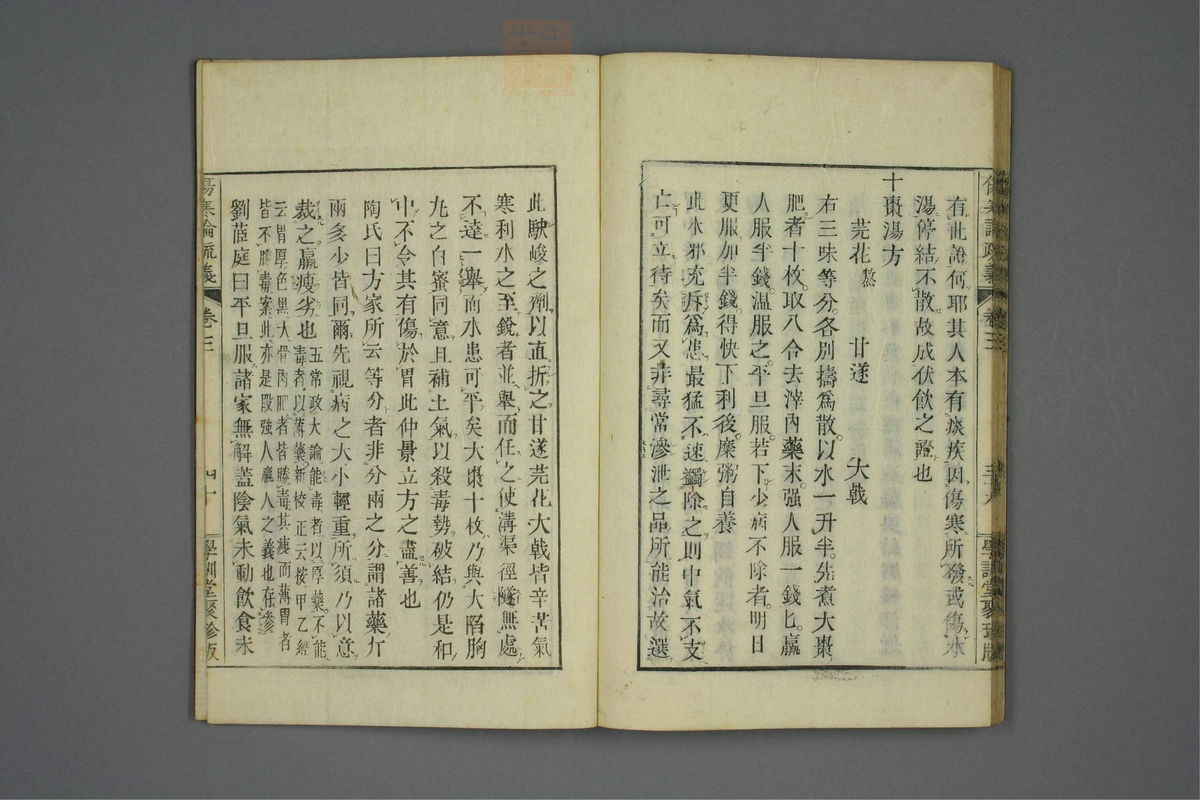 有此證何耶其人本有痰疾因傷寒所發或傷水
湯停結不散故成伏飲之證也
十棗湯方
芫花熬　甘遂　大戟
右三味等分各別擣為散以水一升半先煮大棗
肥者十枚取八合去滓內藥末强人服一錢匕羸
人服半錢溫服之平旦服若下少病不除者明日
更服加半錢得快下利後糜粥自養
此水邪充斥為患最猛不速蠲除之則中氣不支
亡可立待矣而又非尋常滲泄之品所能治故選
此駃峻之劑以直折之甘遂芫花大戟皆辛苦氣
寒利水之至銳者並舉而任之使溝渠徑隧無處
不達一舉而水患可平矣大棗十枚乃與大陷胸
丸之白蜜同意且補土氣以殺毒勢破結仍是和
中不令其有傷於胃此仲景立方之盡善也
陶氏曰方家所云等分者非分兩之分謂諸藥斤
兩多少皆同爾先視病之大小輕重所須乃以意
裁之羸瘦劣也
五常政大論能毒者以厚藥不能
毒者以薄藥新校正云按甲乙經
云胃厚色黑大骨肉肥者皆勝毒其瘦而薄胃者
皆不勝毒案此亦是段强人羸人之義也存參
劉茝庭曰平旦服諸家無解蓋陰氣未動飲食未
傷寒論疏義
卷三
四十
學訓堂聚珍版